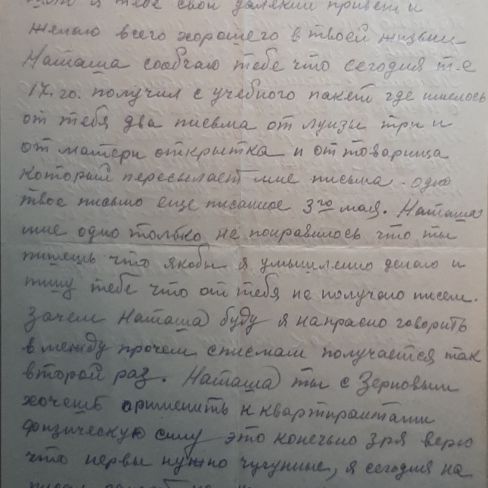 я тебе свой далекий привет и
желаю всего хорошего в твоей жизни
Наташа сообчаю тебе что сегодня т-е
17.го. получил с учебного пакет где имелось
от тебя два письма от луизы три и
от матери открытка и от товарища
который пересылает мне письма. одно
твое письмо еще писанное 3го мая. Наташа
мне одно только не понравилось что ты
пишешь что якобы я умышленно делаю и
пишу тебе что от тебя не получаю писем.
Зачем Наташа буду я напрасно говорить
в между прочем списмам получается так
второй раз. Наташа ты с Зерновым
хочешь применить к квартирантами
физическую силу это конечно зря верю
что нервы нужно чугунные, я сегодня на